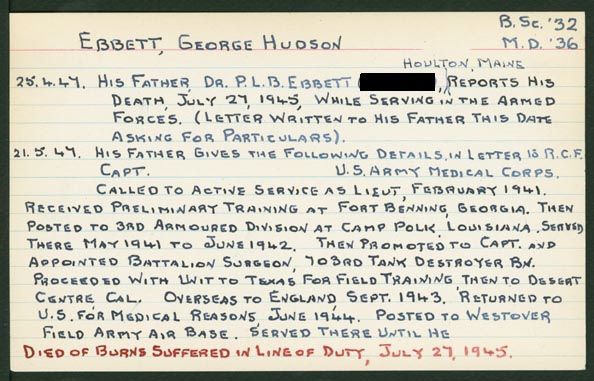 B.Sc. '32
EBBETT, GEORGE HUDSON M.D. '36
HOULTON, MAINE
25.4.47. HIS FATHER, DR. P.L.B. EBBETT ( ,) REPORTS HIS
DEATH, JULY 27, 1945, WHILE SERVING IN THE ARMED
FORCES. (LETTER WRITTEN TO HIS FATHER THIS DATE
ASKING FOR PARTICULARS).
21.5.47. HIS FATHER GIVES THE FOLLOWING DETAILS, IN LETTER TO R.C.F.
CAPT. U.S. ARMY MEDICAL CORPS.
CALLED TO ACTIVE SERVICE AS LIEUT, FEBRUARY 1941.
RECEIVED PRELIMINARY TRAINING AT FORT BENNING, GEORGIA. THEN
POSTED TO 3RD ARMOURED DIVISION AT CAMP POLK, LOUISIANA. SERVED
THERE MAY 1941 TO JUNE 1942. THEN PROMOTED TO CAPT. AND
APPOINTED BATTALION SURGEON, 703RD TANK DESTROYER BN.
PROCEEDED WITH UNIT TO TEXAS FOR FIELD TRAINING, THEN TO DESERT
CENTRE CAL. OVERSEAS TO ENGLAND, SEPT. 1943. RETURNED TO
U.S. FOR MEDICAL REASONS, JUNE 1944. POSTED TO WESTOVER
FIELD ARMY AIR BASE. SERVED THERE UNTIL HE
DIED OF BURNS SUFFERED IN LINE OF DUTY, JULY 27, 1945.